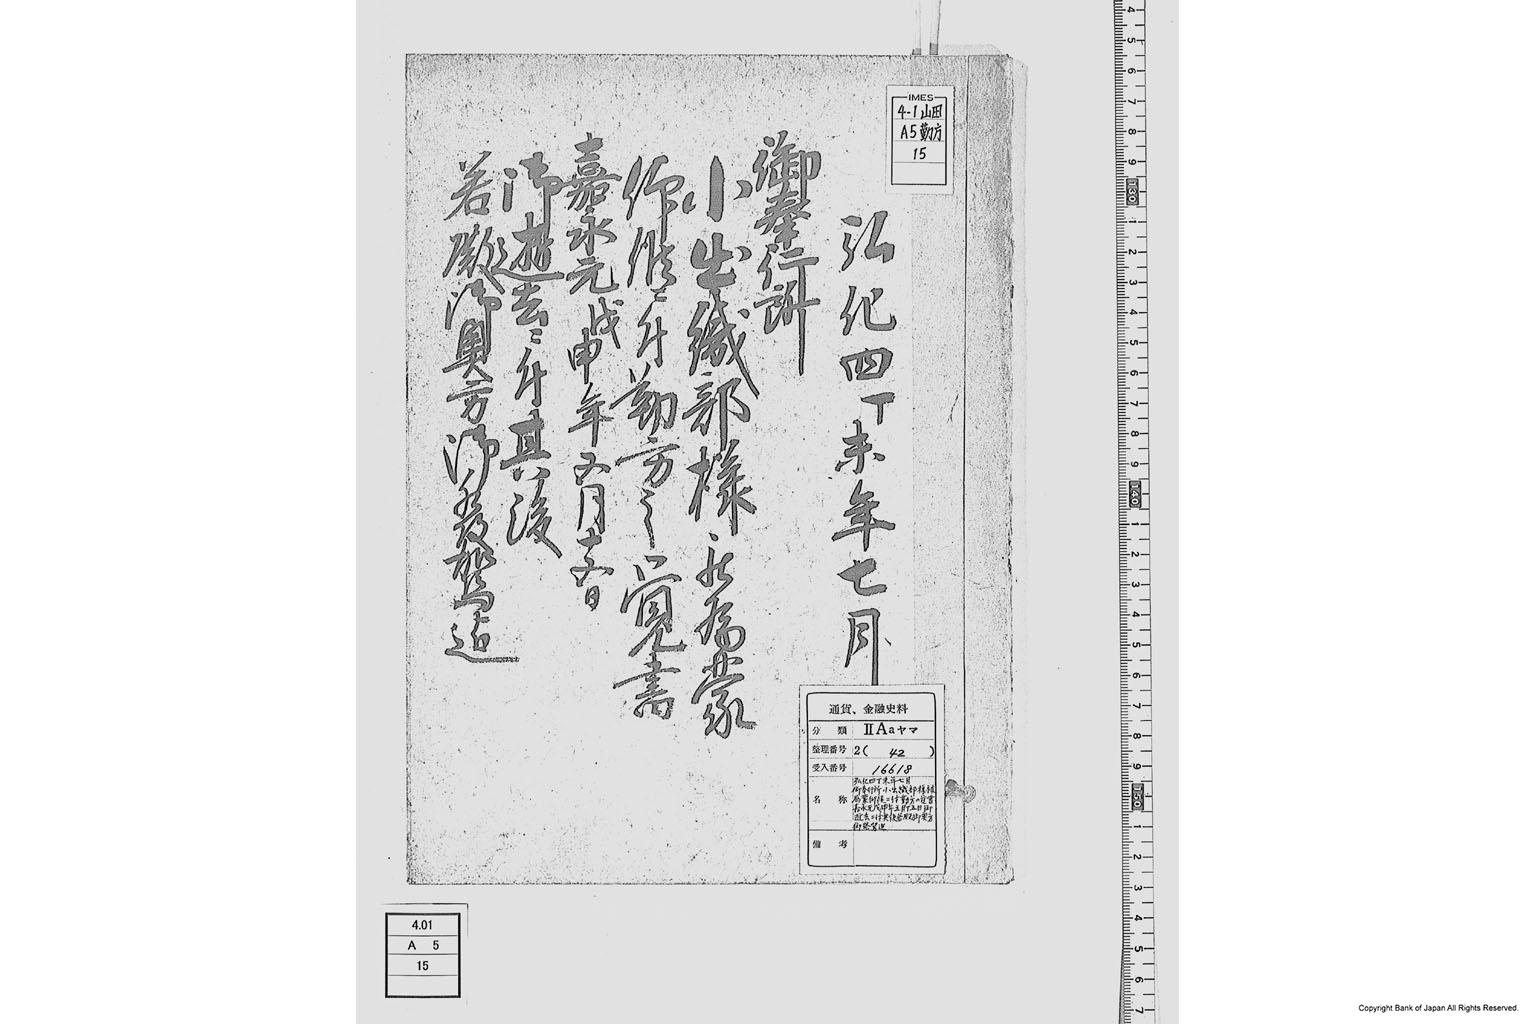 弘化四丁未年七月
御奉行所
小出織部様被為蒙
仰候ニ付勤方之覚書
嘉永元戊申年五月十五日
御逝去ニ付其後
若殿御奥方御発駕迄
IMES
4-1 山田
A5 勤方
15
通貨、金融史料
分類 ⅡAaヤマ
整理番号 2( 42 )
受入番号 16618
名称 弘化四丁未年七月
御奉行所小出織部様被
為蒙仰候ニ付勤方の覚書
嘉永元戊申年五月十五日御
逝去ニ付其後若殿御奥方
御発駕迄
備考
4.01
A 5
15
Copyright Bank of Japan All Rights Reserved.